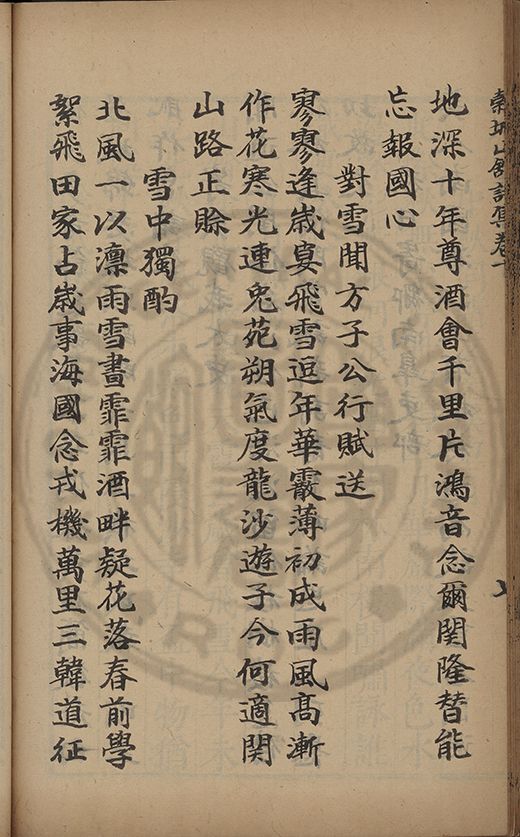 地深十年尊酒會千里片鴻音念爾関隆替能
忘報國心
對雪聞方子公行賦送
寥寥逢歲宴飛雪逗年華霰薄初成雨風髙漸
作花寒光連兎苑朔氣度龍沙遊子今何適関
山路正賖
雪中獨酌
北風一以凛雨雪晝霏霏酒畔疑花落春前學
絮飛田家占歲事海國念戎機萬里三韓道征